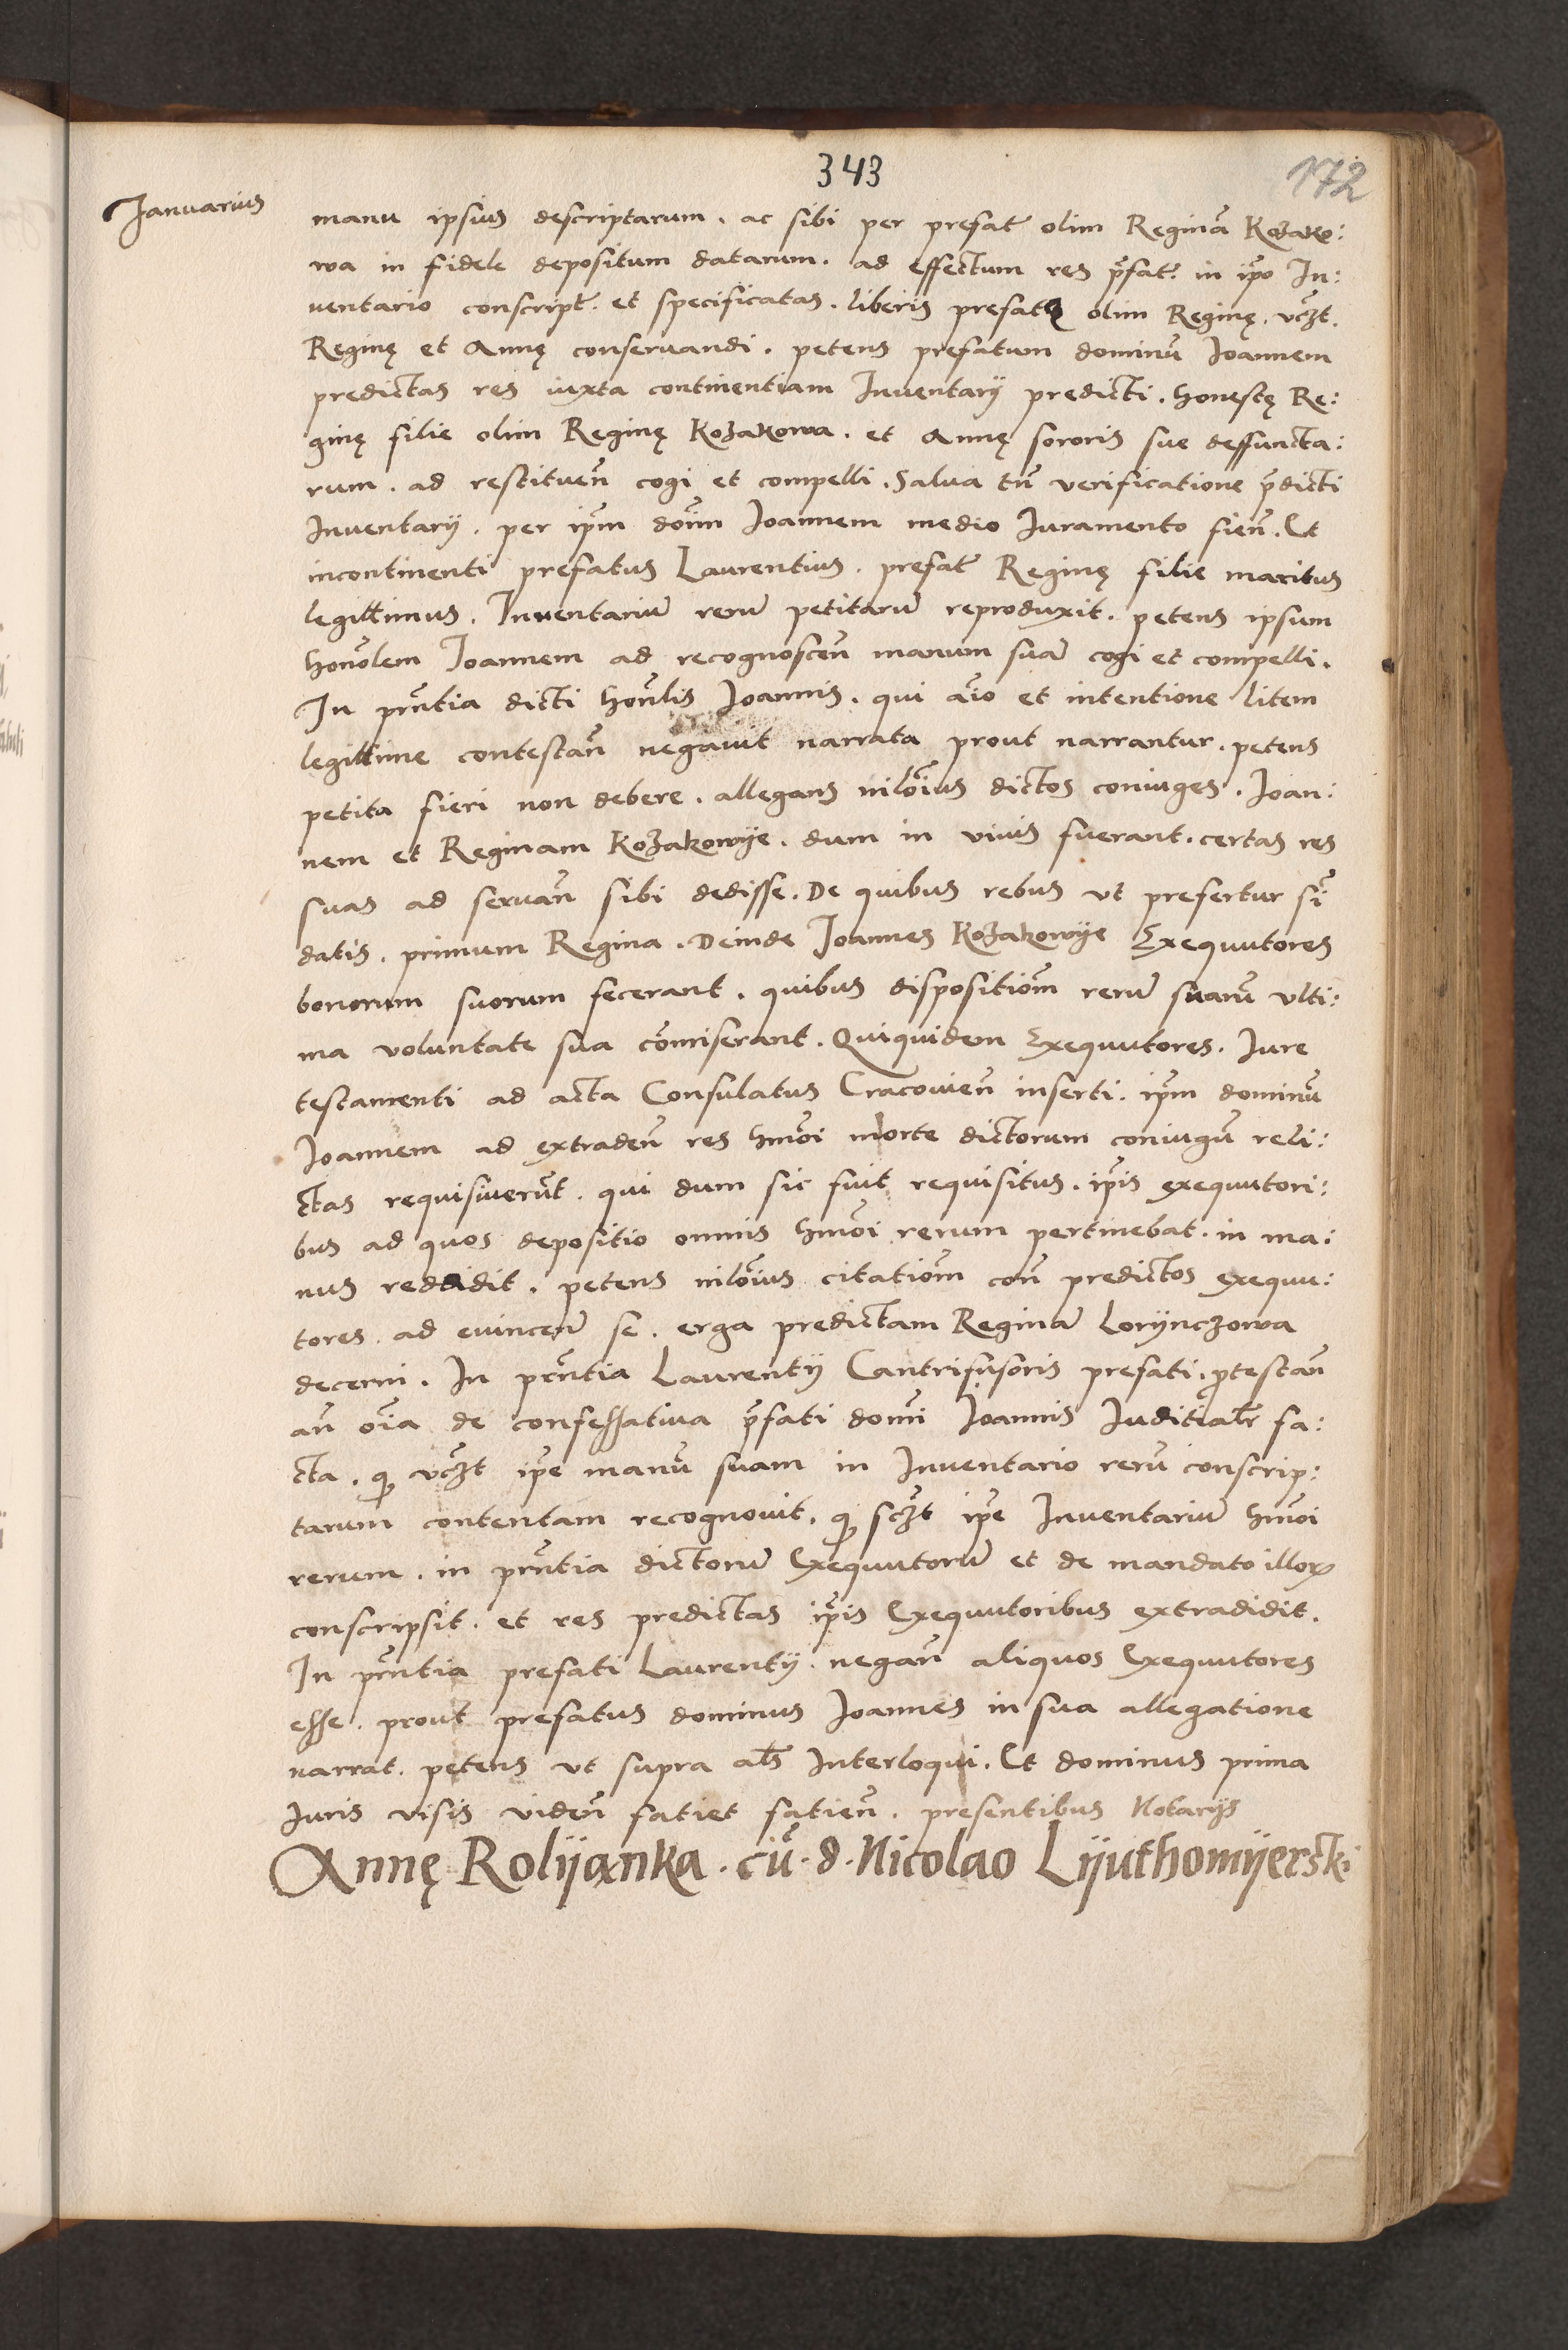 343
172
Januarius
manu ipsius descriptarum. ac sibi per prefat̃ olim Reginã Kozako:
wa in fidele depositum datarum. ad effectum res p̃fat̃. in ip̃o In:
ventario conscript̃. et specificatas. liberis prefatę olim Reginę. vcz̃t.
Reginę et Annę conseruandi. petens prefatum dominũ Joannem
predictas res iuxta continentiam Inventarij predicti. honestę Re:
ginę filie olim Reginę Kozakowa. et Annę sororis sue deffuncta:
rum. ad restitueñ cogi et compelli. Salua tñ verificatione p̃dicti
Inventarij. per ip̃m dom̃ Joannem medio Juramento fieñ. Et
incontinenti prefatus Laurentius. prefat̃ Reginę filie maritus
legittimus. Inuentariũ rerũ petitarũ reproduxit. petens ipsum
honõlem Joannem ad recognosceñ manum suã cogi et compelli.
In pñtia dicti honõlis Joannis. qui aĩo et intentione litem
legittime contestañ negauit narrata prout narrantur. petens
petita fieri non debere. allegans nilõius dictos coniuges. Joan:
nem et Reginam Kozakowije. dum in viuis fuerant. certas res
suas ad seruañ sibi dedisse. De quibus rebus vt prefertur sĩ
datis. primum Regina. Deinde Joannes Kozakowije Exequutores
bonorum suorum fecerant. quibus dispositiõm rerũ suarũ vlti:
ma voluntate sua cõmiserant. Quiquidem Exequutores. Jure
testamenti ad acta Consulatus Cracouieñ inserti. ip̃m dominũ
Joannem ad extradeñ res hmõi morte dictorum coniugũ reli:
ctas requisiuerũt. qui dum sic fuit requisitus. ip̃is exequutori:
bus ad quos depositio omnis hmõi rerum pertinebat. in ma:
nus reddidit. petens nilõius citatiõm coñ predictos exequu:
tores. ad euinceñ se. erga predictam Reginã Lorijnczowa
decerni. In pñtia Laurentij Cantrifusoris prefati. p̃testañ
añ oĩa de confessatiua p̃fati domĩ Joannis Juditialr̃ fa:
cta. q̃ vcz̃t ip̃e manũ suam in Inuentario rerũ conscrip:
tarum contentam recognouit. q̃ scz̃t ip̃e Inuentariũ hmõi
rerum. in pñtia dictorũ Exequutorũ et de mandato illoꝝ
conscripsit. et res predictas ip̃is Exequutoribus extradidit.
In pñtia prefati Laurentij. negañ aliquos Exequutores
esse. prout prefatus dominus Joannes in sua allegatione
narrat. petens vt supra als̃ Interloqui. Et dominus prima
Juris visis videñ fatiet fatieñ. presentibus Notarijs
Annę Rolijanka. cũ. d. Nicolao Lijuthomijerski